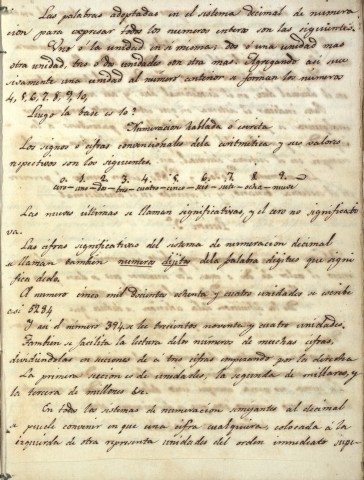 Las palabras adoptadas en el sistema decimal de numera
cion para expresar todos los numeros enteros son las siguientes.
Uno o la unidad en si misma; dos o una unidad mas
otra unidad, tres o dos unidades con otra mas. Agregando asi suce
sivamente una unidad al numero anterior se forman los numeros
4, 5, 6, 7, 8, 9, 10,
Luego la base es 10?
Numeracion hablada ó escrita
Los signos o cifras convencionales dela aritmetica y sus valores
respectivos son los siguientes.
0. 1. 2. 3. 4. 5. 6. 7. 8. 9.
cero—uno—dos—tres—cuatro—cinco—seis—siete—ocho—nueve
Las nueve últimas se llaman significativas, y el cero no significati
va.
Las cifras significativas del sistema de numeracion decimal
se llaman tambien numeros dijitos dela palabra digitus que signi
fica dedo.
A numero cinco mil docientos ochenta y cuatro unidades se escribe
asi 5284
Y en el número 394 se lee trecientos noventa y cuatro unidades.
Tambien se facilita la lectura delos numeros de muchas cifras,
dividiendolas en secciones de a tres cifras empezando por la derecha
La primera seccion es de unidades, la segunda de millares, y
la tercera de millones &c.
En todos los sistemas de numeracion semejantes al decimal
se puede convenir en que una cifra cualquiera, colocada á la
izquierda de otra representa unidades del orden inmediato supe-